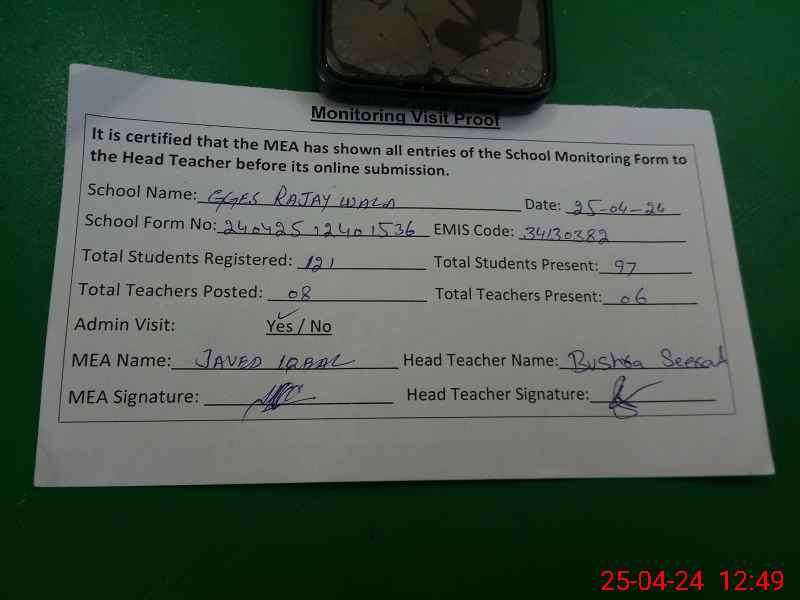 Monitoring Visit Proof
It is certified that the MEA has shown all entries of the School Monitoring Form to
the Head Teacher before its online submission.
School Name: GGES RAJAY WALA Date: 25-04-24
School Form No: 240425 12401536 EMIS Code: 34130382
Total Students Registered: 121 Total Students Present: 97
Total Teachers Posted: 08 Total Teachers Present: 06
Admin Visit: Yes / No
MEA Name: JAVED IQBAL Head Teacher Name: Bushra
MEA Signature: Head Teacher Signature:
25-04-24 12:49